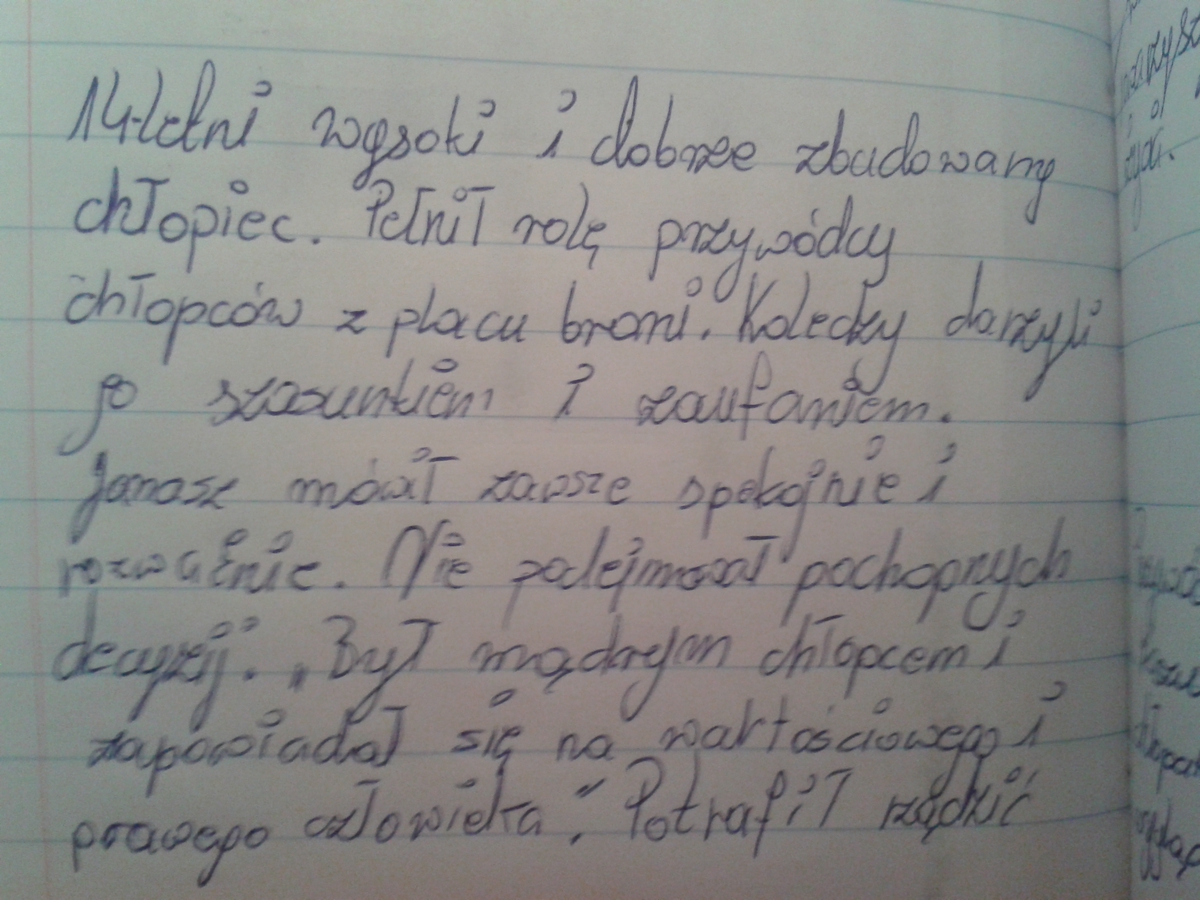 14-letni wysoki i dobrze zbudowany
chłopiec. Pełnił rolę przywódcy
chłopców z placu broni. Koledzy darzyli
go szacunkiem i zaufaniem.
Janosz mówił zawsze spokojnie i
rozważnie. Nie podejmował pochopnych
decyzji. „Był mądrym chłopcem i
zapowiadał się na wartościowego i
prawego człowieka". Potrafił rządzić